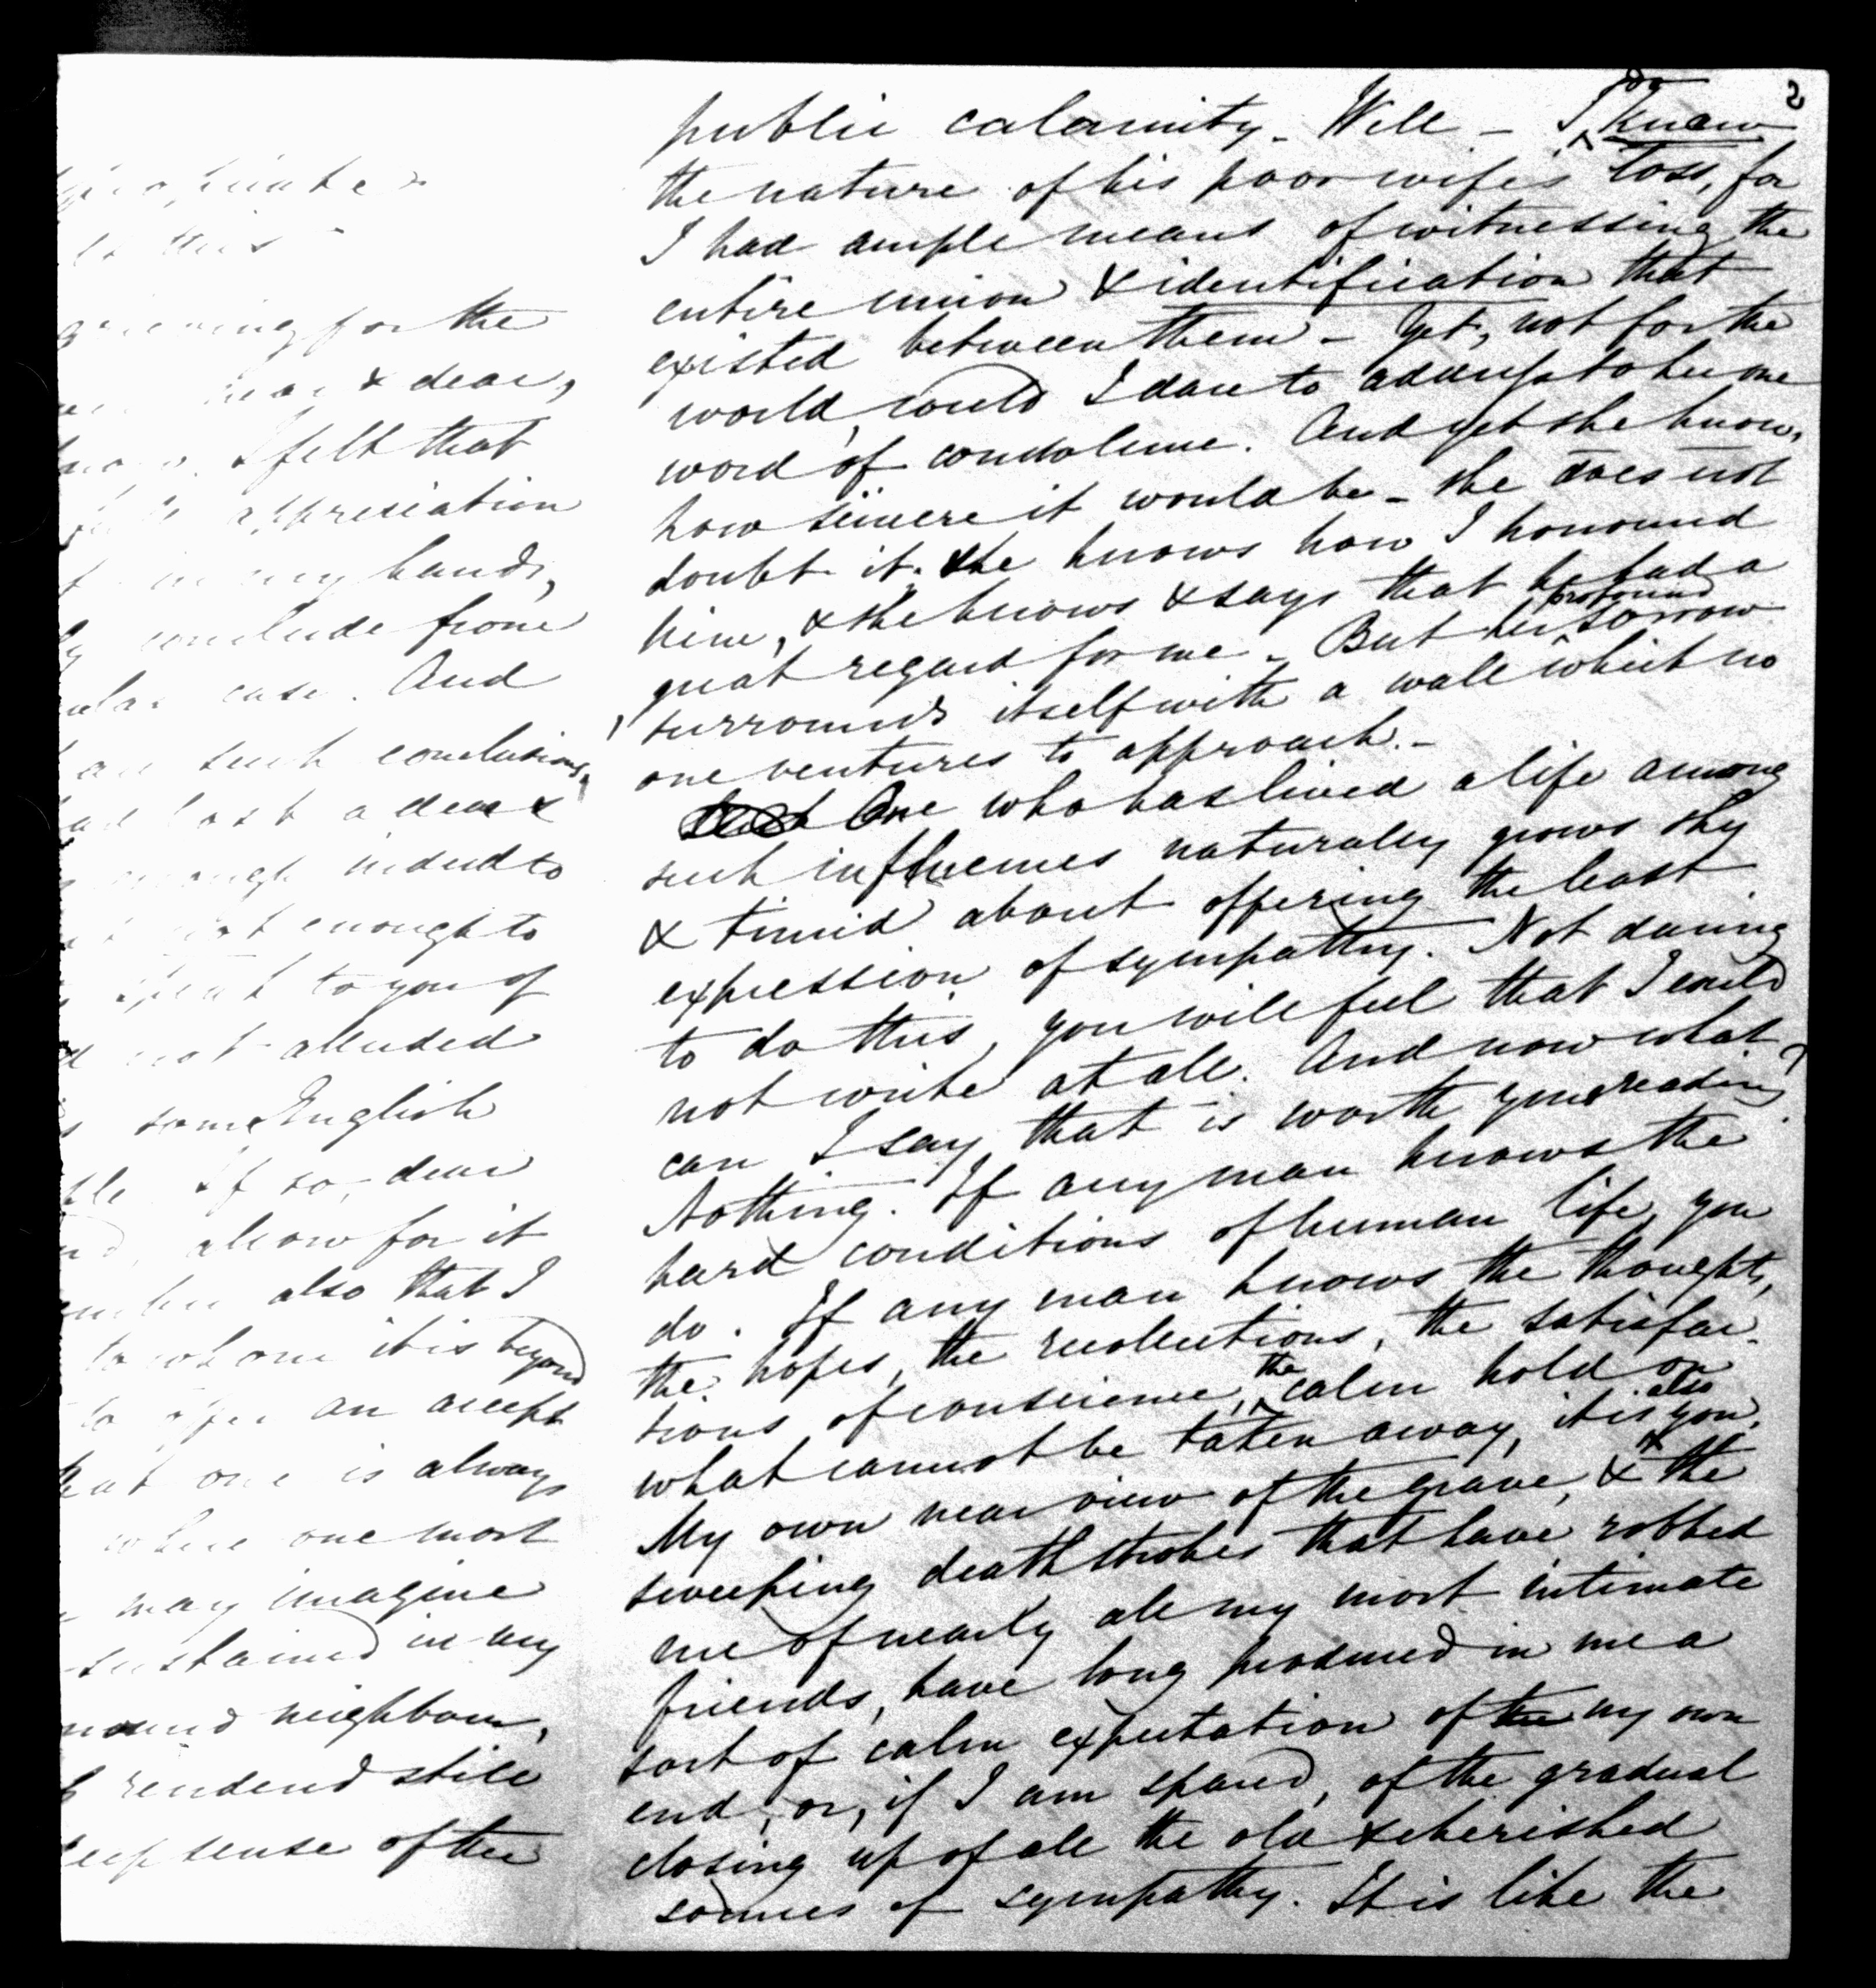 to this
grieving for the
near & dear,
I felt that
appreciation
in my hands,
conclude from
case. And
such conclusions,
lost a dear &
enough indeed to
not enough to
speak to you of
not alluded
some English
If so, dear
allow for it
also that I
to whom it is beyond
to offer an accept
that one is always
where one most
may imagine
sustained in my
neighbour,
rendered still
deep sense of the
2
public calamity. Well — I do know
the nature of his poor wife's loss, for
I had ample means of witnessing the
entire union & identification that
existed between them — Yet, not for the
world, could I dare to address to her one
word of condolence. And yet she knows
how sincere it would be — she does not
doubt it. She knows how I honoured
him, & she knows & says that he had a
great regard for me — But her profound sorrow
surrounds itself with a wall which no
one ventures to approach. —
One who has lived a life among
such influences naturally grows shy
& timid about offering the least
expression of sympathy. Not daring
to do this, you will feel that I could
not write at all. And now what
can I say that is worth your reading?
Nothing. If any man knows the
hard conditions of human life, you
do. If any man knows the thoughts,
the hopes, the recollections, the satisfac-
tions of conscience, the calm hold on
what cannot be taken away, it is also you.
My own near view of the grave, & the
sweeping death strokes that have robbed
me of nearly all my most intimate
friends, have long produced in me a
sort of calm expectation of the my own
end, or, if I am spared, of the gradual
closing up of all the old & cherished
sources of sympathy. It is like the